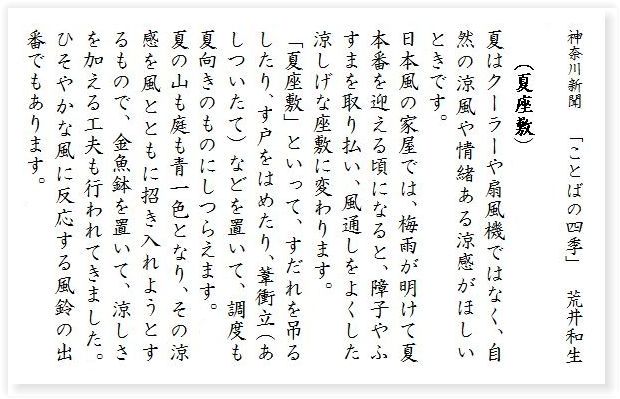 神奈川新聞　「ことばの四季」　荒井和生
（夏座敷）
夏はクーラーや扇風機ではなく、自
然の涼風や情緒ある涼感がほしい
ときです。
日本風の家屋では、梅雨が明けて夏
本番を迎える頃になると、障子やふ
すまを取り払い、風通しをよくした
涼しげな座敷に変わります。
「夏座敷」といって、すだれを吊る
したり、す戸をはめたり、葦衝立（あ
しついたて）などを置いて、調度も
夏向きのものにしつらえます。
夏の山も庭も青一色となり、その涼
感を風とともに招き入れようとす
るもので、金魚鉢を置いて、涼しさ
を加える工夫も行われてきました。
ひそやかな風に反応する風鈴の出
番でもあります。